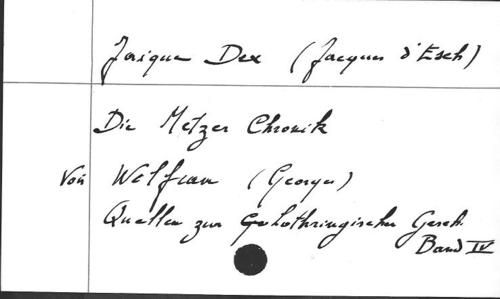 Jaique Dex (Jacques d'Esch)
Die Metzer Chronik
Von Wolfram (Georges)
Quellen zur Lothringischen Gesch.
Band IV